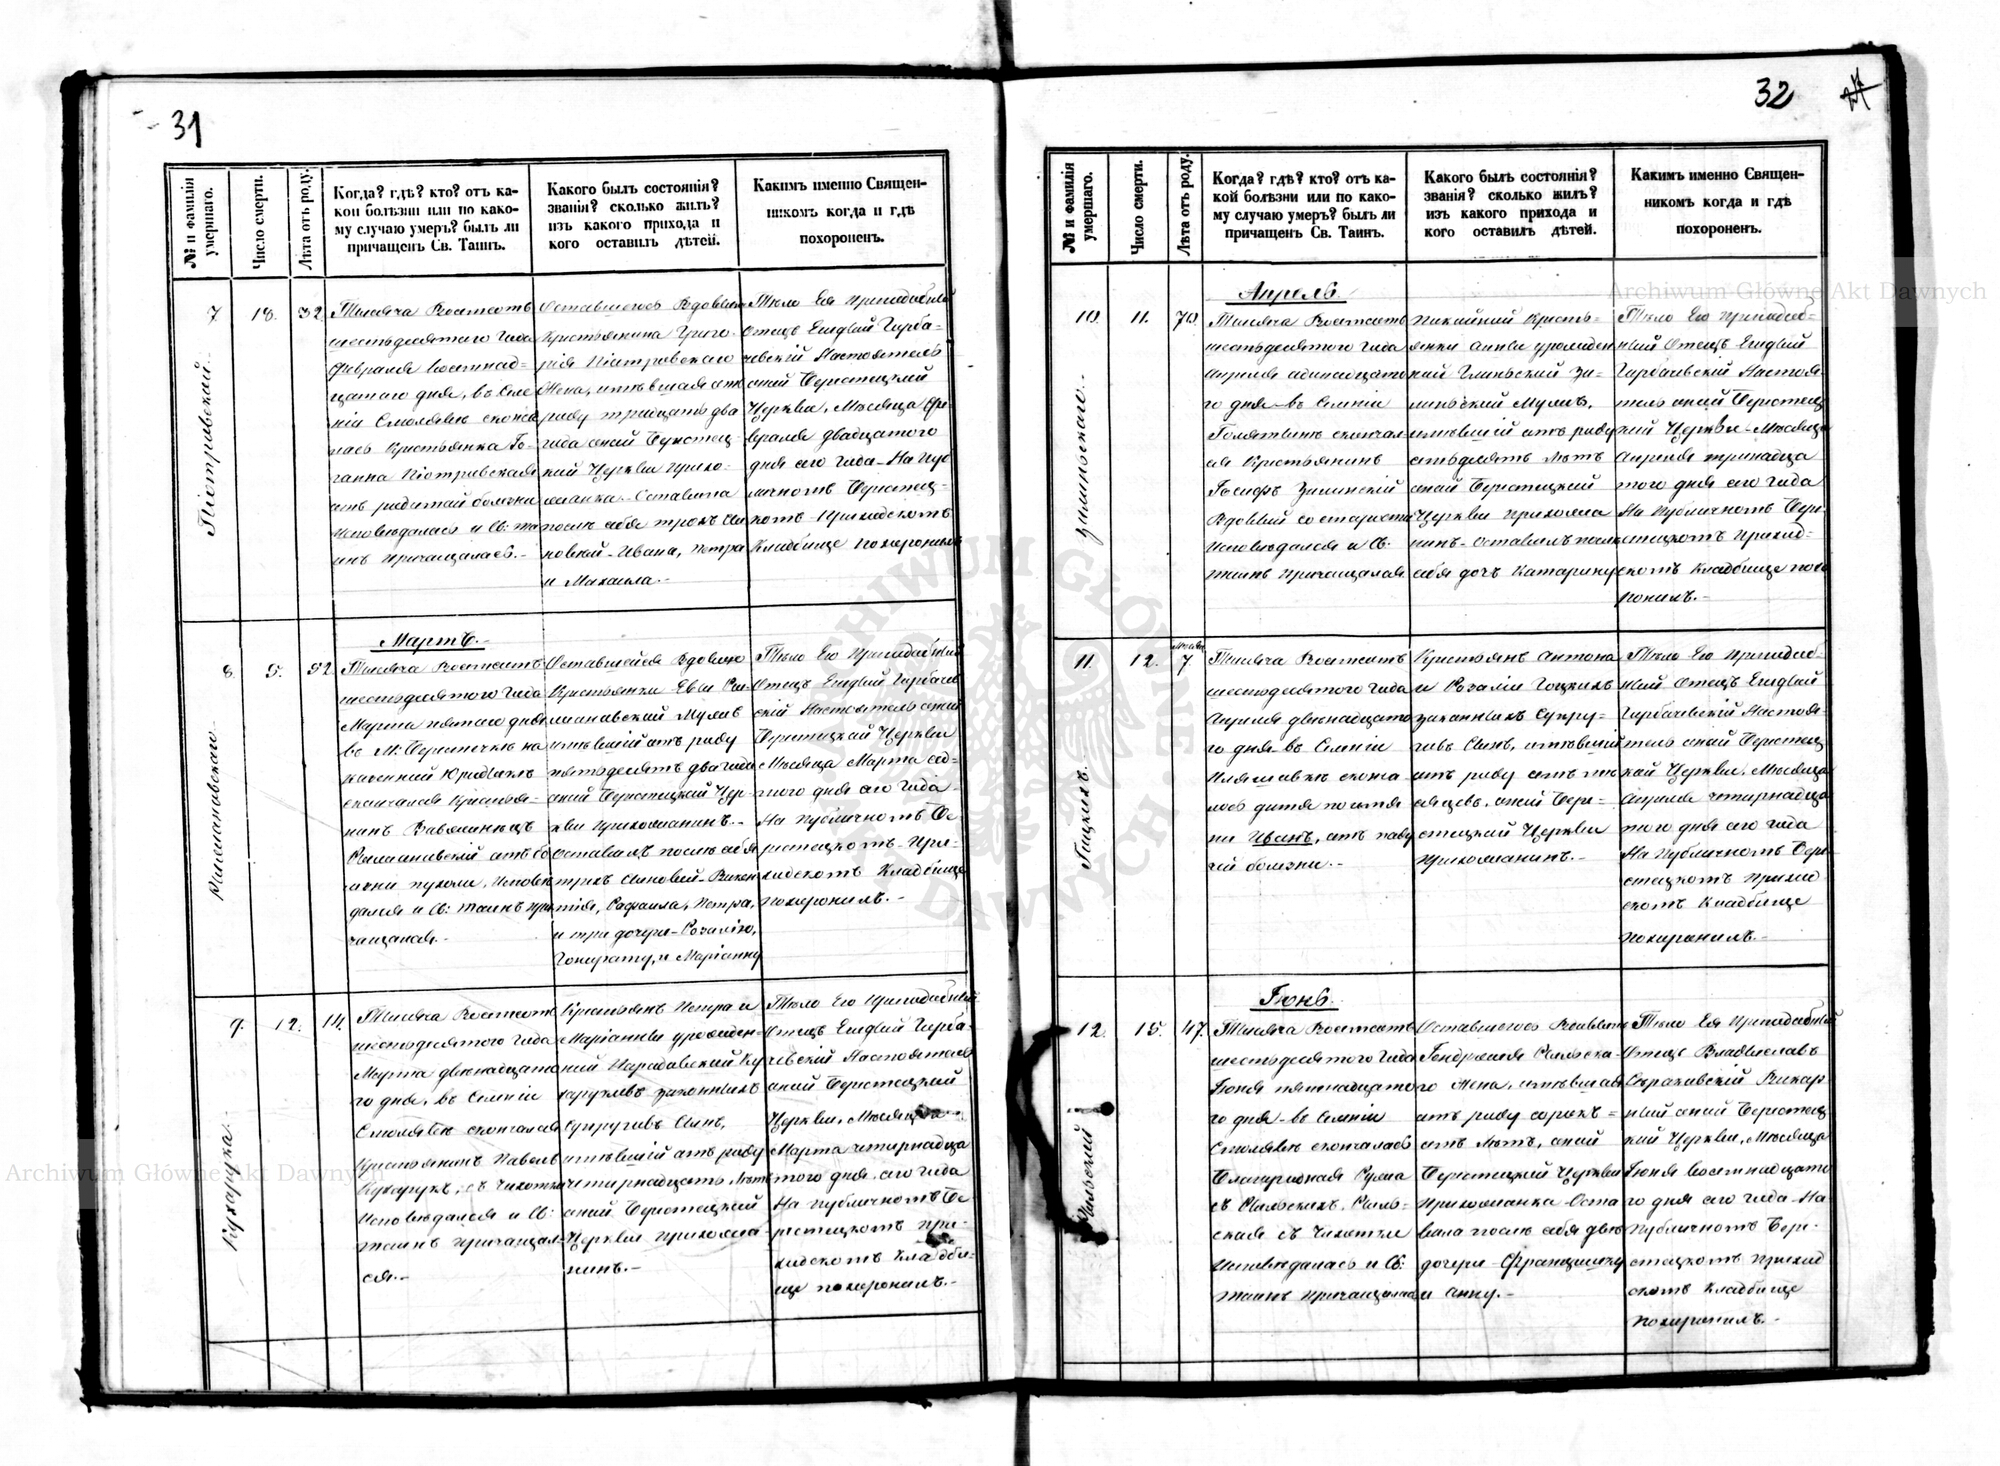 31
№ и фамилія умершаго.
Число смерти.
Лѣта отъ роду.
Когда? гдѣ? кто? отъ ка-
кой болѣзни или по како-
му случаю умеръ? былъ ли
причащенъ Св. Таинъ.
Какого былъ состоянія?
званія? сколько жилъ?
изъ какого прихода и
кого оставилъ дѣтей.
Какимъ именно Священ-
никомъ когда и гдѣ
похороненъ.
7
18.
32.
Тысяча Восемсотъ
шестьдесятого Года
Февраля восемнад-
цатого дня, въ Селе
ніи Смолявѣ сконча
лась Крестьянка Іо-
ганна Піотровская
Исповѣдалась и Св: та
инъ Причащалась.-
Оставшегося Вдовцемъ
Крестьянина Григо-
рія Піотровского
Жена, имѣвшая отъ
роду тридцать два
года оной Берестец-
кой Церкви прихо-
жанка.- Оставила
после себя трохъ сы
новей - Ивана, Петра
и Михаила.-
Тело Ея Преподобный
Отецъ Емидвій Горба-
чевскій Настоятель
оной Берестецкой
Церкви, Мѣсяца Фе-
враля двадцатого
дня сего Года - На Пуб
личномъ Берестец-
комъ Приходскомъ
Кладбище похоронилъ
Мартъ.-
8.
5.
52
Тысяча Восемсотъ
шестьдесятого Года
Марта пятого дня
въ М: Берестечкѣ на
скончался Крестья-
нинъ
Исповѣ
дался и Св: Таинъ При
чащался.-
Оставшейся Вдовою
Крестьянки Евы
Мужъ
имѣвшій отъ роду
пятьдесятъ два года
оной Берестецкой Цер-
кви Прихожанинъ.-
Оставилъ после себя
трохъ Сыновей - Викен
тія, Рафаила, Петра,
и три дочери - Розалію,
и Маріанну
Тѣло Его Преподобный
Отецъ Емидвій Горбачев
скій Настоятель оной
Берестецкой Церкви
Мѣсяца Марта сед-
мого дня сего Года -
На Публичномъ Бе-
рестецкомъ При-
ходскомъ Кладбище
похоронилъ.-
9.
12.
14.
Тысяча Восемсотъ
шестьдесятого Года
Марта двенадцато
го дня, въ Селеніи
Смолявѣ скончался
Крестьянинъ Павелъ
Кухарукъ, съ Чахотки
Исповѣдался и Св:
Таинъ Причащал-
ся.-
Крестьянъ Петра и
Маріанны урожден-
ной Ку
харуковъ законныхъ
Супруговъ Сынъ,
имѣвшій отъ роду
четирнадцать Лѣтъ
оной Берестецкой
Церкви прихожа
нинъ.-
Тѣло Его Преподобный
Отецъ Емидвій Горба-
чевскій Настоятель
оной Берестецкой
Церкви, Мѣсяца
Марта четирнадца
того дня, сего Года
На Публичномъ Бе-
рестецкомъ При-
ходскомъ Кладби-
ще похоронилъ.-
32
№ и фамилія умершаго.
Число смерти.
Лѣта отъ роду.
Когда? гдѣ? кто? отъ ка-
кой болѣзни или по како-
му случаю умеръ? былъ ли
причащенъ Св. Таинъ.
Какого былъ состоянія?
званія? сколько жилъ?
изъ какого прихода и
кого оставилъ дѣтей.
Какимъ именно Священ-
никомъ когда и гдѣ
похороненъ.
Апрель.
10.
11.
70.
Тысяча Восемсотъ
шестьдесятого Года
Апреля одинадцато
го дня - въ Селеніи
скончал
ся Крестьянинъ
Іосифъ Зилинскій
Вдовый со старости
Исповѣдался и Св.
Таинъ Причащался
Покойной Кресть-
янки Анны урожден
ной Зи-
линьской Мужъ,
имѣвшій отъ роду
семьдесятъ лѣтъ
оной Берестецкой
Церкви Прихожа
нинъ - Оставилъ после
себя дочь Катарину
Тѣло Его Преподоб-
ный Отецъ Емидвій
Горбачевскій Настоя-
тель оной Берестец
кой Церкви - Мѣсяца
Апреля тринадца
того дня сего Года
На Публичномъ Бере-
стецкомъ Приход-
скомъ Кладбище похо
ронилъ.-
11.
12.
7
Тысяча Восемсотъ
шестьдесятого Года
Апреля двенадцато
го дня - въ Селеніи
Иляшовкѣ сконча
лось дитя по име
ни Иванъ,
болезни.-
Крестьянъ Антона
и Розаліи Гоцкихъ
законныхъ Супру-
говъ Сынъ, имѣвшій
отъ роду семъ мѣ
сяцевъ, оной Бере-
стецкой Церкви
Прихожанинъ.-
Тѣло Его Преподоб-
ный Отецъ Емидвій
Горбачевскій Настоя-
тель оной Берестец
кой Церкви, Мѣсяца
Апреля четирнадца
того дня сего Года
На Публичномъ Бере
стецкомъ Приход
скомъ Кладбище
похоронилъ.-
Іюнь.
12.
15.
47.
Тысяча Восемсотъ
шестьдесятого Года
Іюня пятнадцато
го дня - въ Селеніи
Смолявѣ скончалась
съ Чахотки
Исповѣдалась и Св:
Таинъ Причащалась
Оставшегося Вдовцемъ
го Жена, имѣвшая
отъ роду сорокъ =
семъ Лѣтъ, оной
Берестецкой Церкви
Прихожанка - Оста
вила после себя двѣ
дочери - Францишку
и Анну.-
Тѣло Ея Преподобный
Отецъ Владиславъ
Викар
ный оной Берестец
кой Церкви, Мѣсяца
Іюня восемнадцато
го дня сего Года - На
Публичномъ Бере-
стецкомъ Приход
скомъ Кладбище
похоронилъ.-
Archiwum Główne Akt Dawnych
Archiwum Główne Akt Dawnych
ARCHIWUM GŁÓWNE AKT DAWNYCH